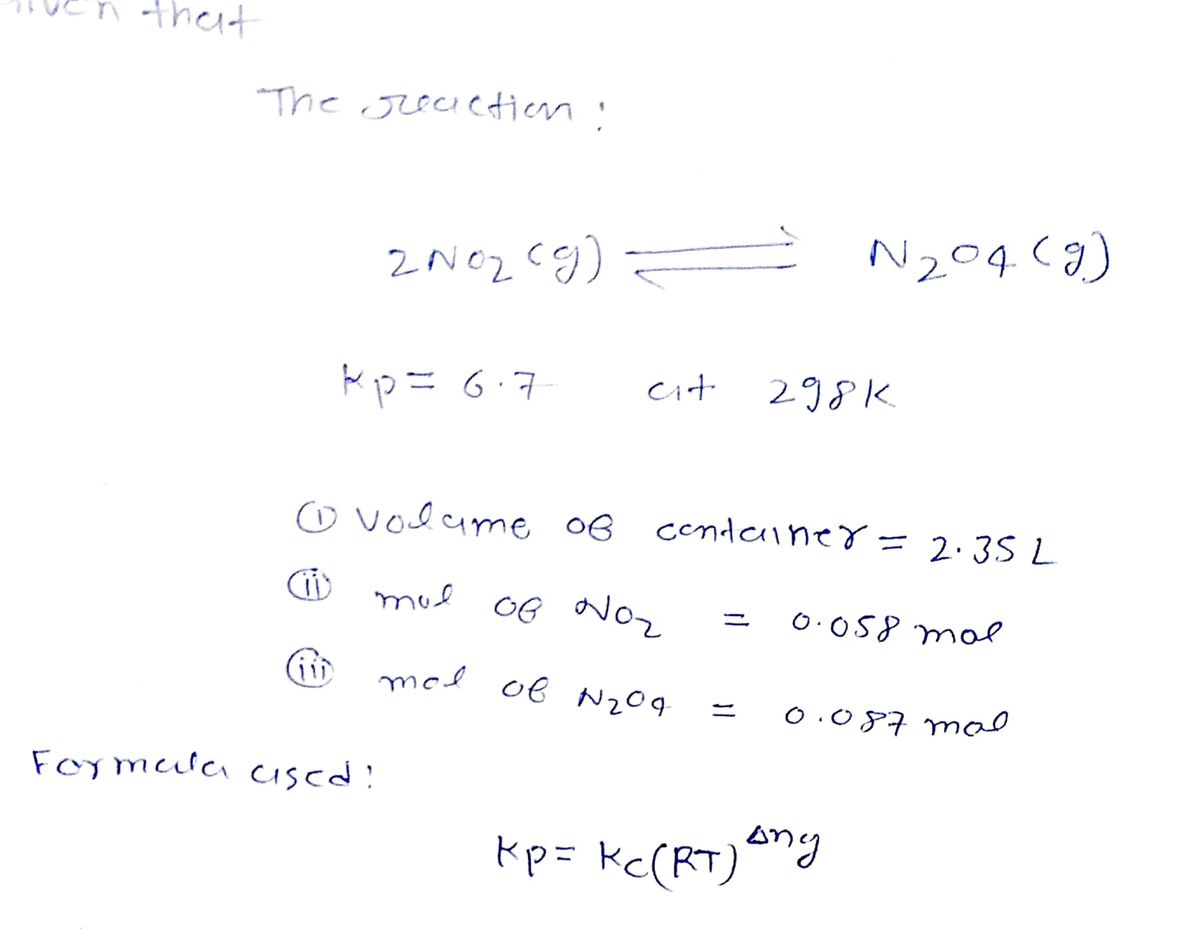 that
The reaction :
2NO2 (g) ⇌ N2O4 (g)
Kp = 6.7 at 298K
(i) Volume of container = 2.35 L
(ii) mol of NO2 = 0.058 mol
(iii) mol of N2O4 = 0.087 mol
Formula used :
Kp = Kc(RT)^Δng